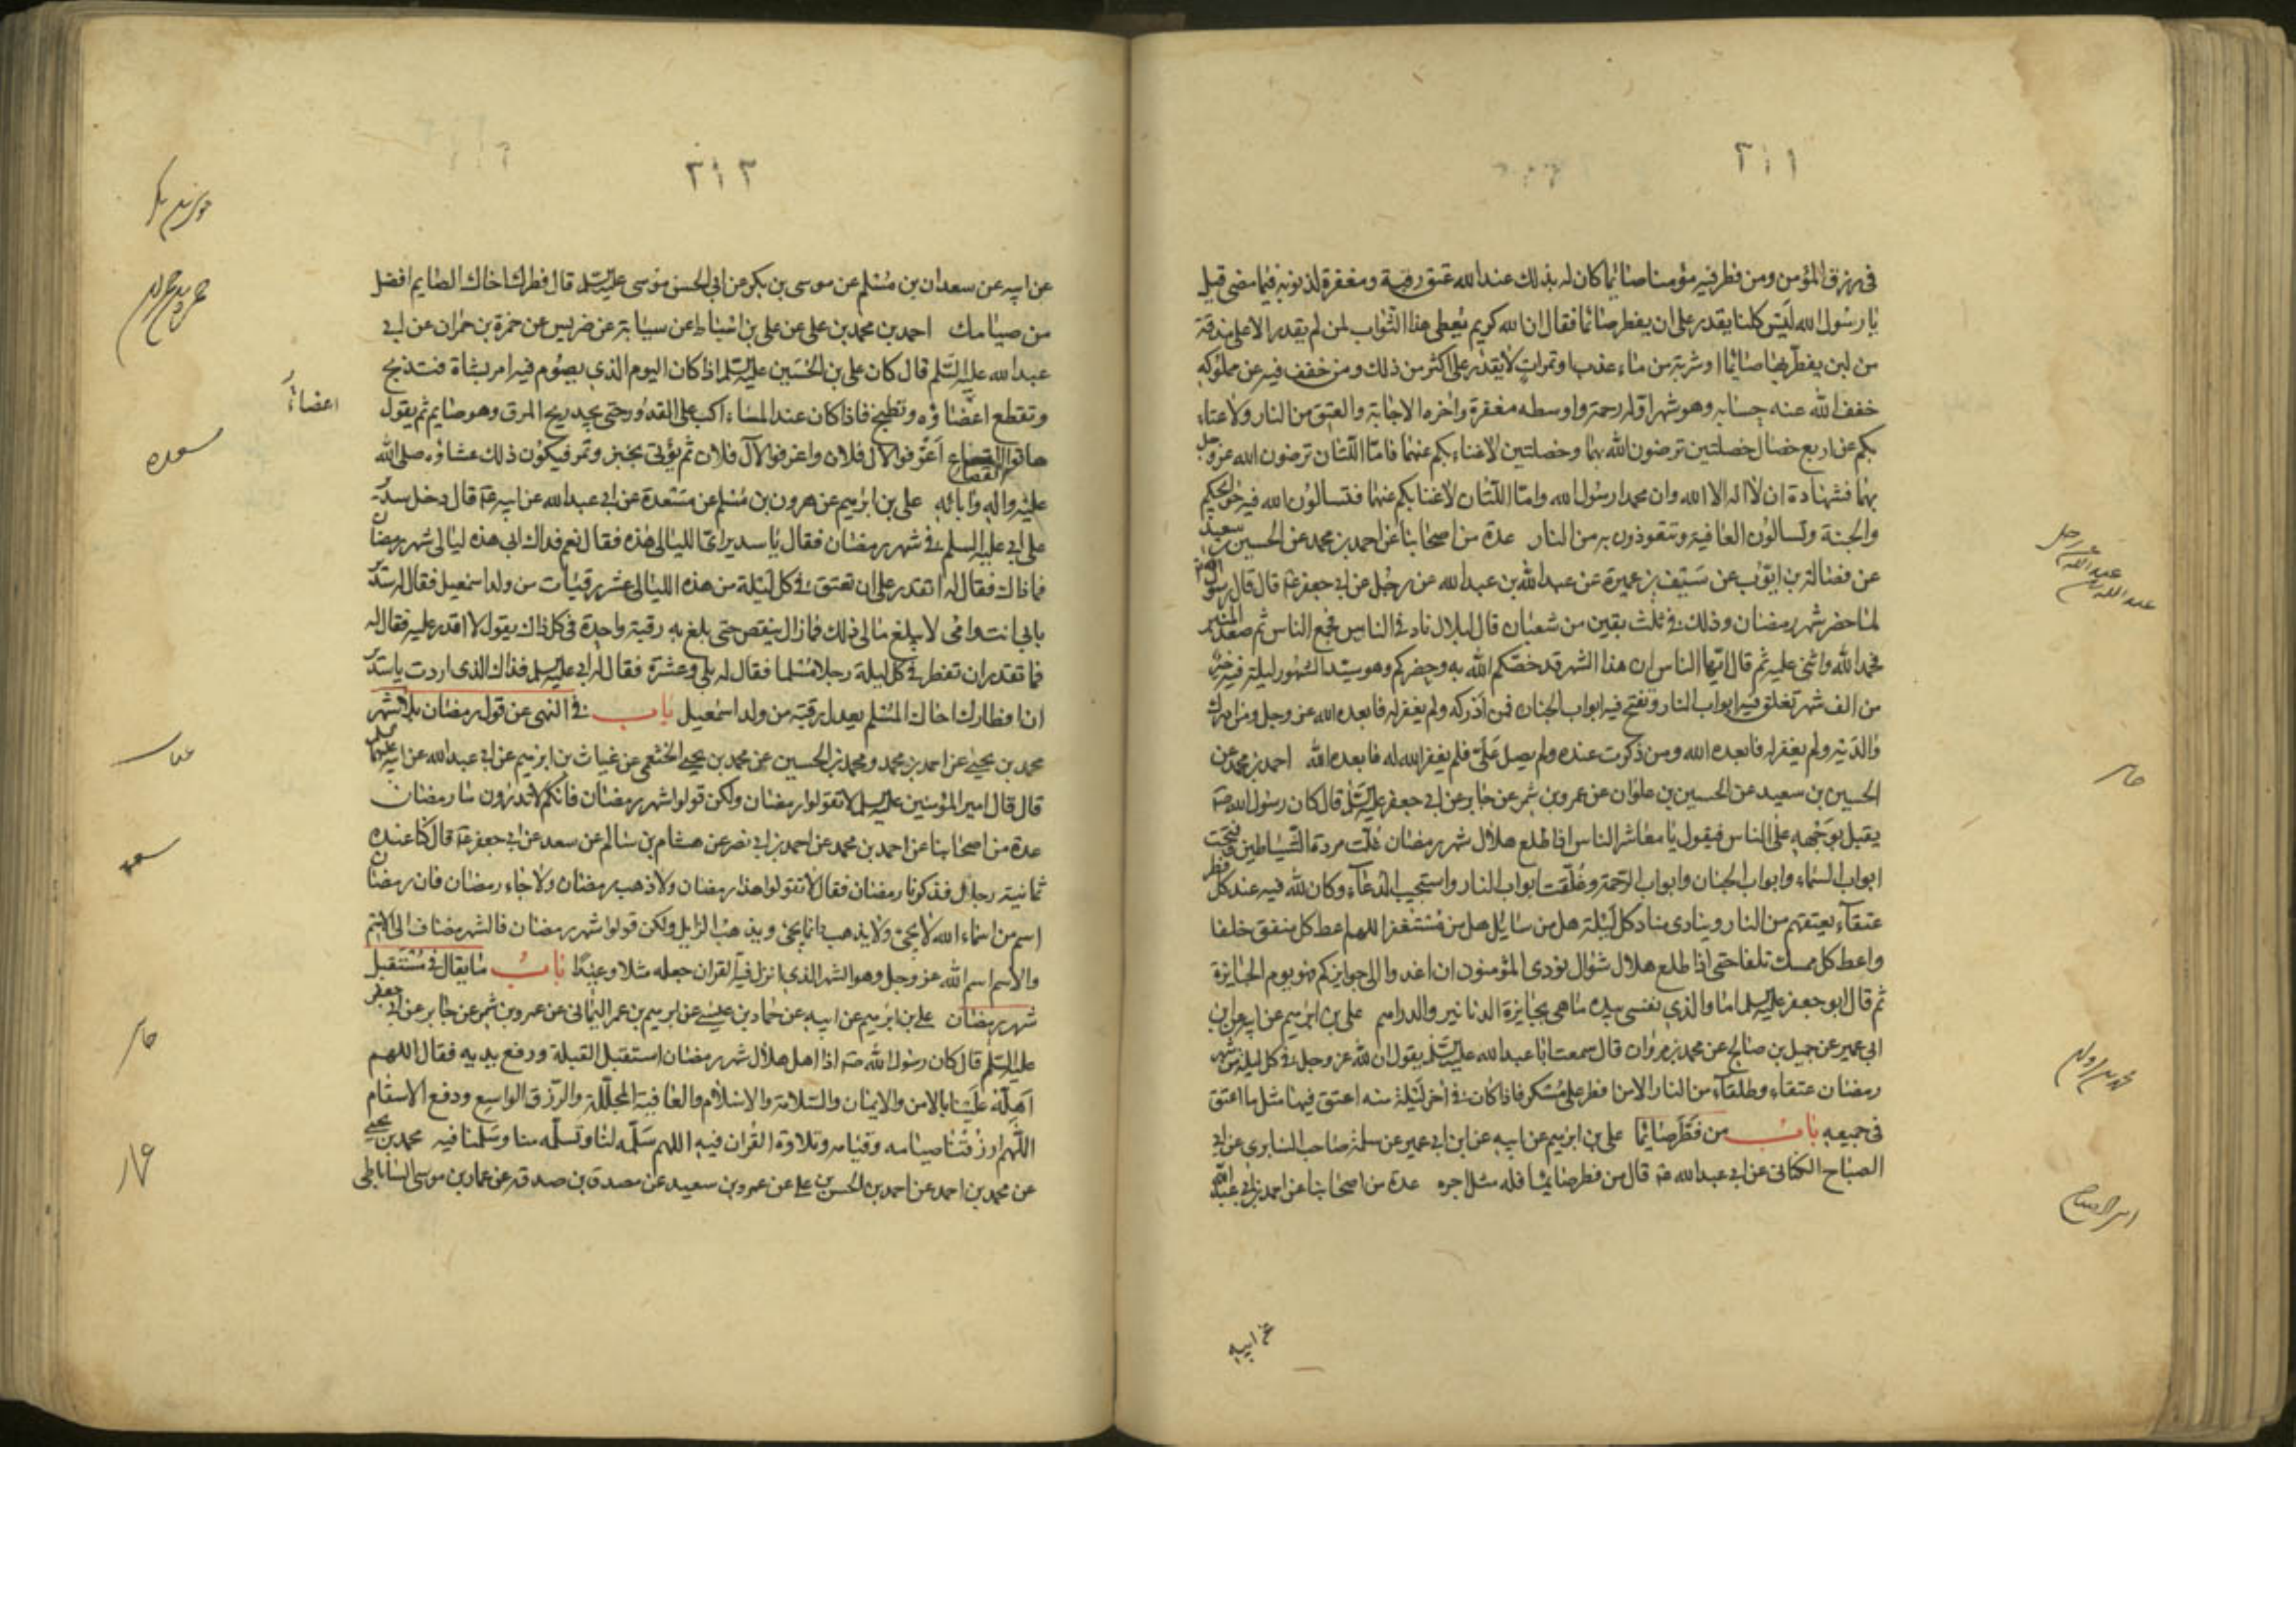 ٢١١
فى رزق المؤمن ومن فطر فيه مؤمنا صائما كان له بذلك عند الله عتق رقبة ومغفرة لذنوبه فيما مضى قيل
يا رسول الله ليس كلنا يقدر على ان يفطر صائما فقال ان الله كريم يعطى هذا الثواب لمن لم يقدر الا على مذقة
من لبن يفطر بها صائما او شربة من ماء عذب او تمرات لا يقدر على اكثر من ذلك ومن خفف فيه عن مملوكه
خفف الله عنه حسابه وهو شهر اوله رحمة واوسطه مغفرة واخره الاجابة والعتق من النار ولا غناء
بكم عن اربع خصال خصلتين ترضون الله بهما وخصلتين لا غناء بكم عنهما فاما اللتان ترضون الله عز وجل
بهما فشهادة ان لا اله الا الله وان محمدا رسول الله واما اللتان لا غنا بكم عنهما فتسالون الله فيه حوائجكم
والجنة وتسالون العافية وتتعوذون به من النار عدة من اصحابنا عن احمد بن محمد عن الحسين بن سعيد
عن فضالة بن ايوب عن سيف بن عميرة عن عبد الله بن عبد الله عن رجل عن ابى جعفر ع قال قال رسول الله
لما حضر شهر رمضان وذلك فى ثلث بقين من شعبان قال لبلال ناد فى الناس فجمع الناس ثم صعد المنبر
فحمد الله واثنى عليه ثم قال ايها الناس ان هذا الشهر قد خصكم الله به وحضركم وهو سيد الشهور ليلة فيه خير
من الف شهر تغلق فيه ابواب النار وتفتح فيه ابواب الجنان فمن ادركه ولم يغفر له فابعده الله عز وجل ومن ادرك
والديه ولم يغفر له فابعده الله ومن ذكرت عنده ولم يصل على فلم يغفر الله له فابعده الله احمد بن محمد عن
الحسين بن سعيد عن الحسين بن علوان عن عمرو بن شمر عن جابر عن ابى جعفر عليه السلم قال كان رسول الله ص
يقبل بوجهه على الناس فيقول يا معاشر الناس اذا طلع هلال شهر رمضان غلت مردة الشياطين وفتحت
ابواب السماء وابواب الجنان وابواب الرحمة وغلقت ابواب النار واستجيب الدعاء وكان لله فيه عند كل فطر
عتقاء يعتقهم من النار وينادى مناد كل ليلة هل من سايل هل من مستغفر اللهم اعط كل منفق خلفا
واعط كل ممسك تلفا حتى اذا طلع هلال شوال نودى المؤمنون ان اغدوا الى جوايزكم فهو يوم الجايزة
ثم قال ابو جعفر عليه السلم اما والذي نفسى بيده ما هى بجايزة الدنانير والدراهم على بن ابرهيم عن ابيه عن ابن
ابى عمير عن جميل بن صالح عن محمد بن مروان قال سمعت ابا عبد الله عليه السلم يقول ان لله عز وجل فى كل ليلة من شهر
رمضان عتقاء وطلقاء من النار الا من افطر على مسكر فاذا كان فى آخر ليلة منه اعتق فيها مثل ما اعتق
فى جميعه باب من فطر صائما على بن ابرهيم عن ابيه عن ابن ابى عمير عن سلمة صاحب السابرى عن ابى
الصباح الكنانى عن ابى عبد الله ع قال من فطر صائما فله مثل اجره عدة من اصحابنا عن احمد بن ابى عبد الله
عن ابيه
جابر
٢١٢
عن ابيه عن سعدان بن مسلم عن موسى بن بكر عن ابى الحسن موسى عليه السلم قال فطرك اخاك الصايم افضل
من صيامك احمد بن محمد بن على عن على بن اسباط عن سيابة عن ضريس عن حمزة بن حمران عن ابى
عبد الله عليه السلم قال كان على بن الحسين عليه السلم اذا كان اليوم الذي يصوم فيه امر بشاة فتذبح
وتقطع اعضاؤه وتطبخ فاذا كان عند المساء اكب على القدور حتى يجد ريح المرق وهو صايم ثم يقول
هاتوا القصاع اغرفوا لآل فلان واغرفوا لآل فلان ثم يؤتى بخبز وتمر فيكون ذلك عشاؤه صلى الله
عليه واله وآبائه على بن ابرهيم عن هرون بن مسلم عن مسعدة عن ابى عبد الله عن ابيه ع قال دخل سدير
على ابى عليه السلم فى شهر رمضان فقال يا سدير اى الليالى هذه فقال نعم فداك ابى هذه ليالى شهر رمضان
فما ذاك فقال له اتقدر على ان تعتق فى كل ليلة من هذه الليالى عشر رقبات من ولد اسمعيل فقال له سدير
بابى انت وامى لا يبلغ مالى ذلك فما زال ينقص حتى بلغ به رقبة واحدة فى كل ذلك يقول لا اقدر عليه فقال له
فما تقدر ان تفطر فى كل ليلة رجلا مسلما فقال له بلى وعشرة فقال له ابى عليه السلم فذاك الذى اردت يا سدير
ان افطارك اخاك المسلم يعدل رقبة من ولد اسمعيل باب فى النهى عن قول رمضان بلا شهر
محمد بن يحيى عن احمد بن محمد ومحمد بن الحسين عن محمد بن يحيى الخثعمى عن غياث بن ابرهيم عن ابى عبد الله عن ابيه عليهما السلم
قال قال امير المؤمنين عليه السلم لا تقولوا رمضان ولكن قولوا شهر رمضان فانكم لا تدرون ما رمضان
عدة من اصحابنا عن احمد بن محمد عن احمد بن ابى نصر عن هشام بن سالم عن سعد عن ابى جعفر ع قال كنا عنده
ثمانية رجال فذكرنا رمضان فقال لا تقولوا هذا رمضان ولا ذهب رمضان ولا جاء رمضان فان رمضان
اسم من اسماء الله لا يجئ ولا يذهب وانما يجئ ويذهب الزايل ولكن قولوا شهر رمضان فالشهر مضاف الى الاسم
والاسم اسم الله عز وجل وهو الشهر الذي انزل فيه القران جعله مثلا وعيدا باب ما يقال فى مستقبل
شهر رمضان على بن ابرهيم عن ابيه عن حماد بن عيسى عن ابرهيم بن عمر اليمانى عن عمرو بن شمر عن جابر عن ابى جعفر
عليه السلم قال كان رسول الله ص اذا اهل هلال شهر رمضان استقبل القبلة ورفع يديه فقال اللهم
اهله علينا بالامن والايمان والسلامة والاسلام والعافية المجللة والرزق الواسع ودفع الاسقام
اللهم ارزقنا صيامه وقيامه وتلاوة القران فيه اللهم سلمه لنا وتسلمه منا وسلمنا فيه محمد بن يحيى
عن محمد بن احمد عن احمد بن الحسن بن على عن عمرو بن سعيد عن مصدق بن صدقة عن عمار بن موسى الساباطى
اعضاؤ
مسعده
جابر
عمار